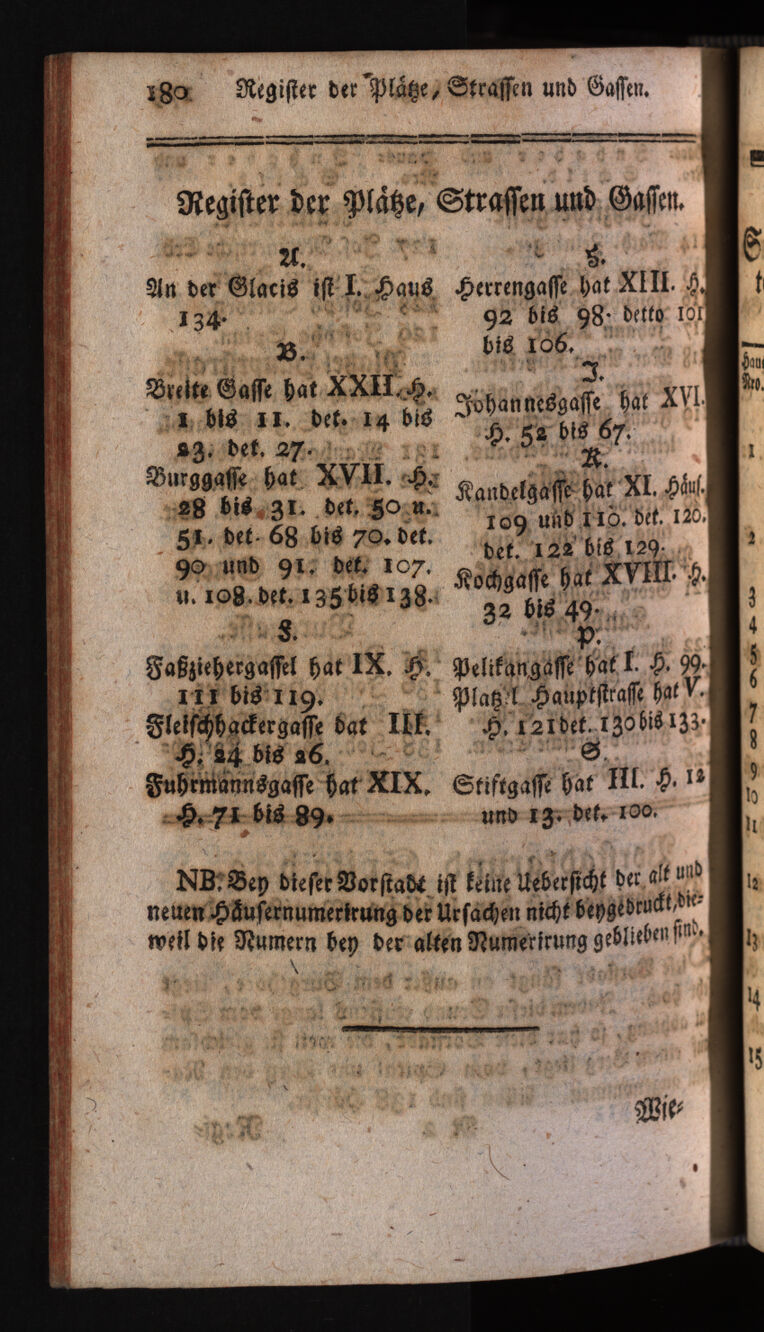 180 Register der Plätze, Strassen und Gassen.
Register der Plätze, Strassen und Gassen.
A.
An der Glacis ist I. Haus
134.
B.
Breite Gasse hat XXII. H.
1 bis 11. det. 14 bis
23. det. 27.
Burggasse hat XVII. H.
28 bis 31. det. 50 u.
51. det. 68 bis 70. det.
90 und 91. det. 107.
u. 108. det. 135 bis 138.
F.
Faßziehergassel hat IX. H.
111 bis 119.
Fleischhackergasse hat III.
H. 24 bis 26.
Fuhrmannsgasse hat XIX.
H. 71 bis 89.
H.
Herrengasse hat XIII. H.
92 bis 98. detto 101
bis 106.
J.
Johannesgasse hat XVI.
H. 52 bis 67.
K.
Kandelgasse hat XI. Häus.
109 und 110. det. 120.
det. 122 bis 129.
Kochgasse hat XVIII. H.
32 bis 49.
P.
Pelikangasse hat I. H. 99.
Platz l. Hauptstrasse hat V.
H. 121 det. 130 bis 133.
S.
Stiftgasse hat III. H. 12
und 13. det. 100.
NB. Bey dieser Vorstadt ist keine Uebersicht der alt und
neuen Häusernumerirung der Ursachen nicht beygedruckt, die-
weil die Numern bey der alten Numerirung geblieben sind.
Wie-
1
2
3
4
5
6
7
8
9
10
11
12
13
14
15